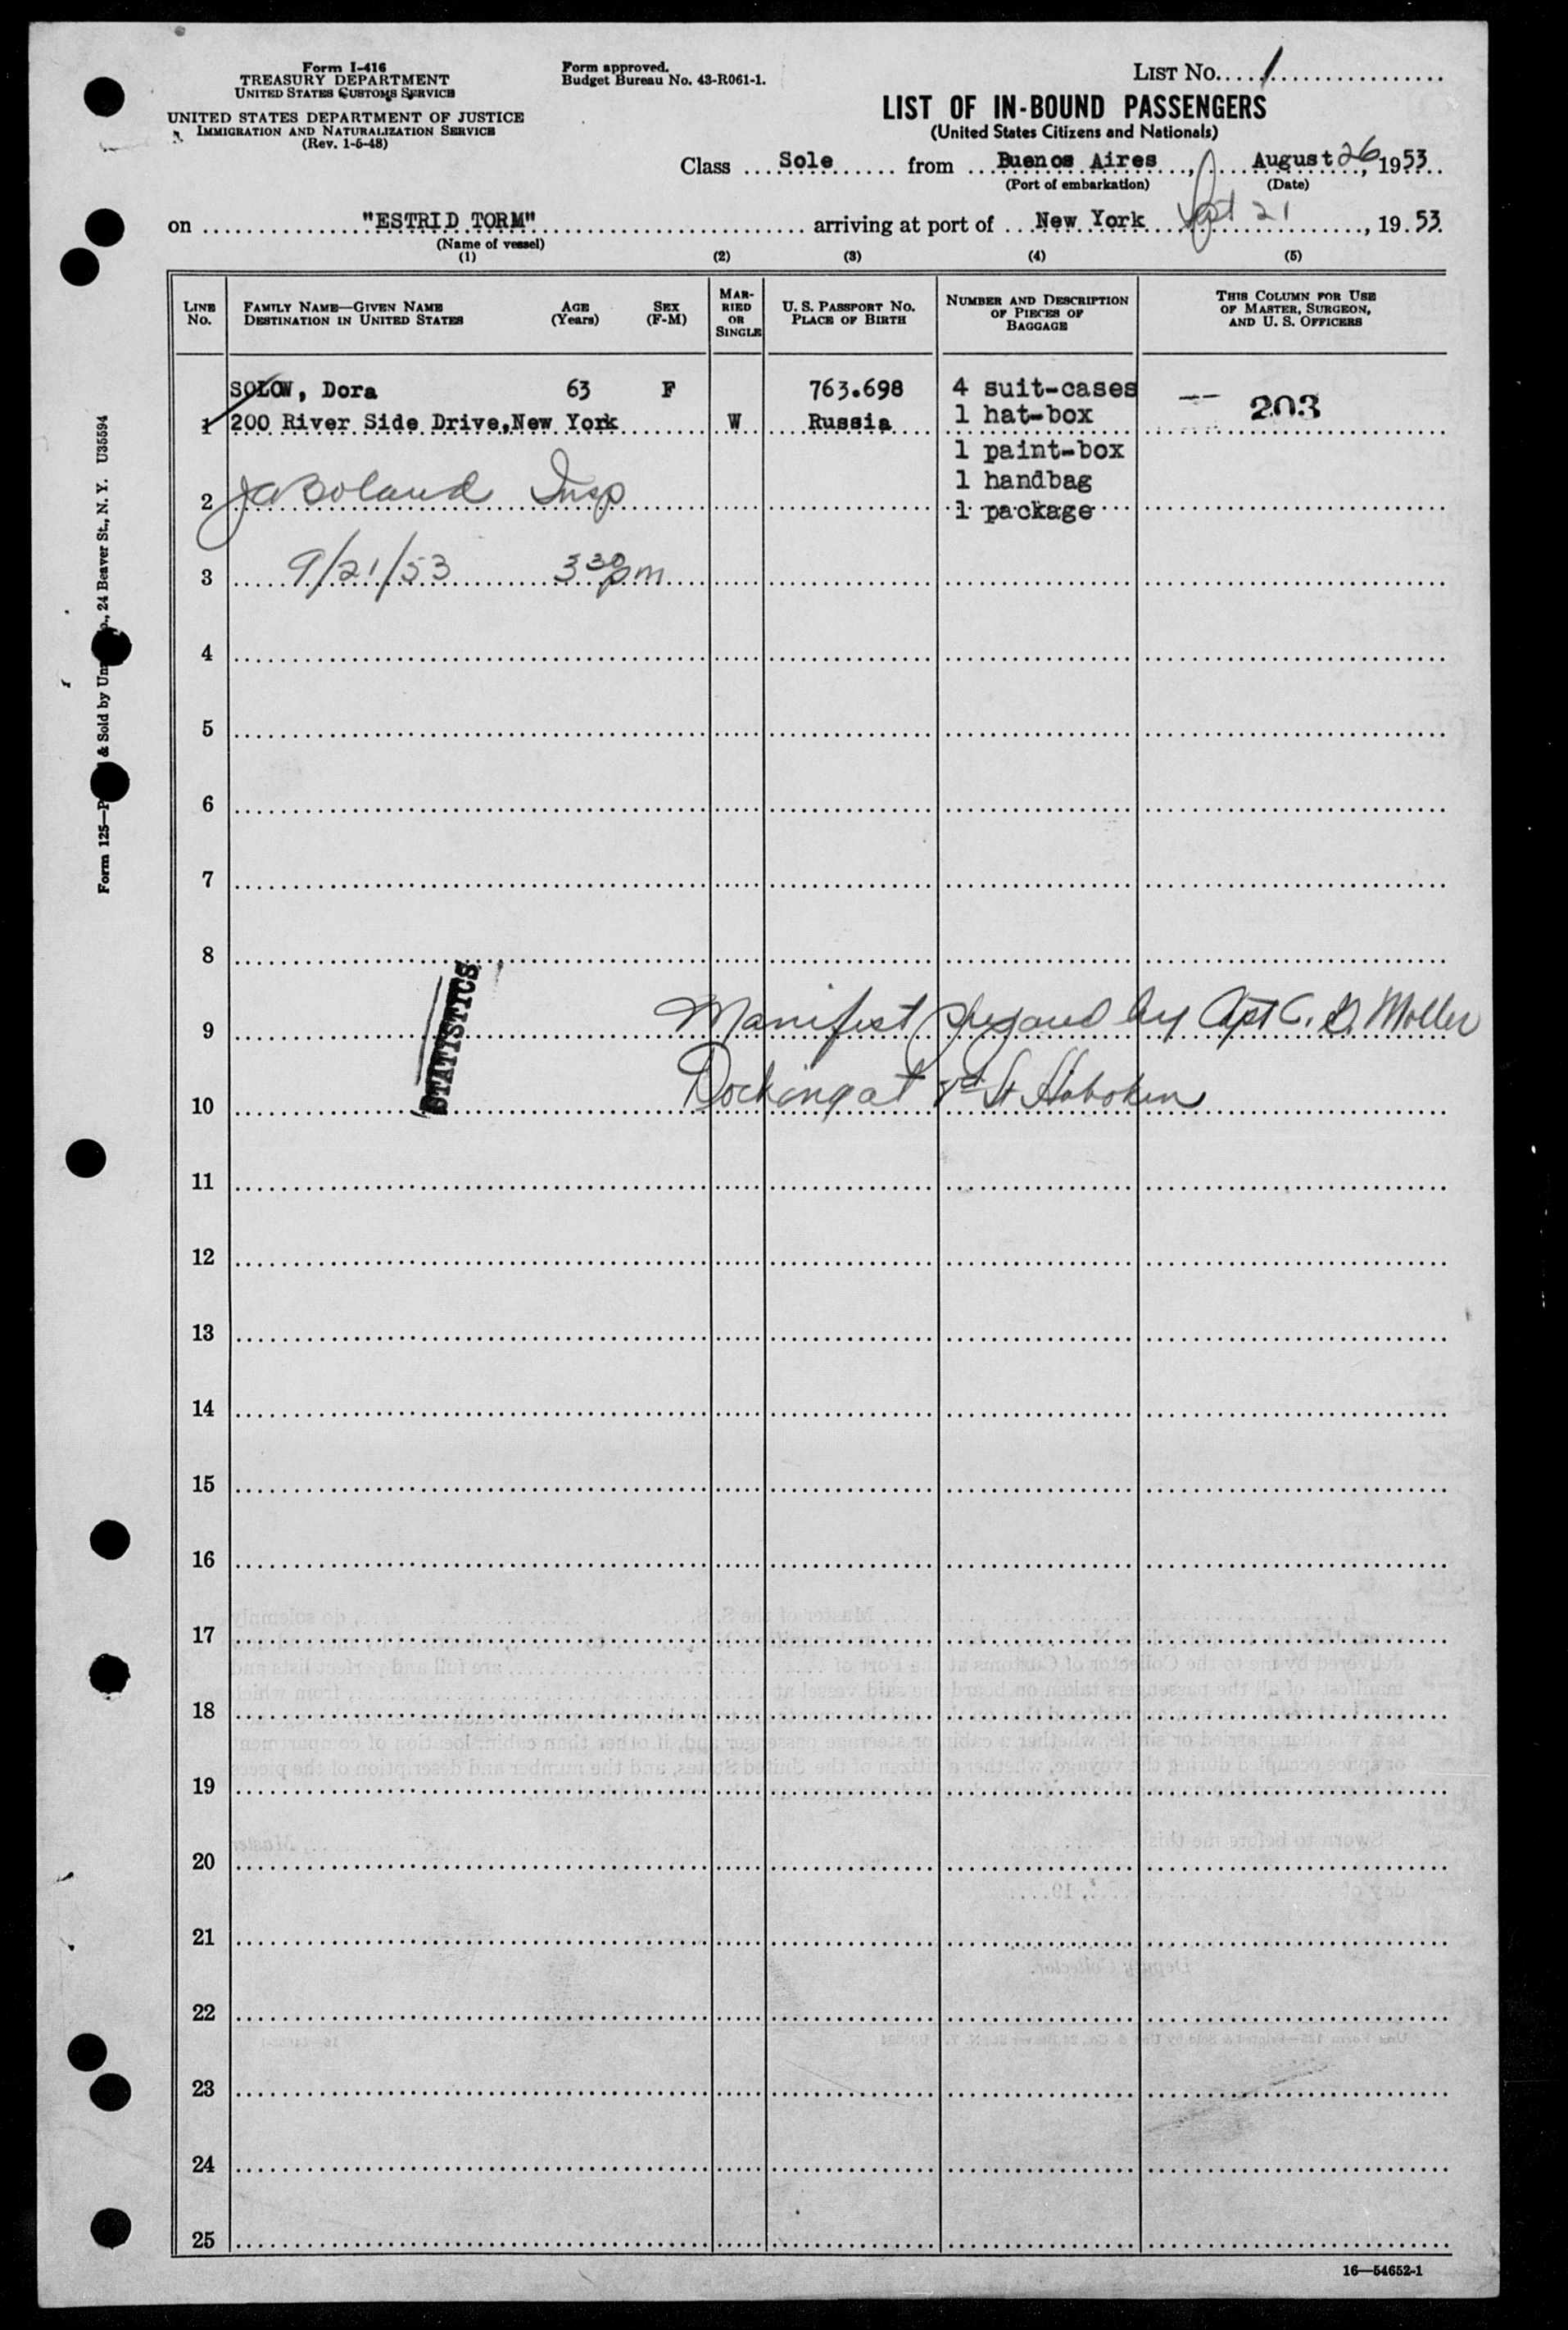 Form I-416
TREASURY DEPARTMENT
UNITED STATES CUSTOMS SERVICE
UNITED STATES DEPARTMENT OF JUSTICE
IMMIGRATION AND NATURALIZATION SERVICE
(Rev. 1-5-48)
Form approved.
Budget Bureau No. 43-R061-1.
LIST No. 1
LIST OF IN-BOUND PASSENGERS
(United States Citizens and Nationals)
Class Sole from Buenos Aires, August 26, 1953
(Port of embarkation) (Date)
on "ESTRID TORM" arriving at port of New York Sept 21, 19 53
(Name of vessel)
(1) (2) (3) (4) (5)
LINE No. FAMILY NAME—GIVEN NAME DESTINATION IN UNITED STATES AGE (Years) SEX (F-M) MARRIED OR SINGLE U. S. PASSPORT No. PLACE OF BIRTH NUMBER AND DESCRIPTION OF PIECES OF BAGGAGE THIS COLUMN FOR USE OF MASTER, SURGEON, AND U. S. OFFICERS
SOLOW, Dora 63 F 763.698 4 suit-cases
1 200 River Side Drive, New York W Russia 1 hat-box 203
1 paint-box
1 handbag
2 JA Boland Insp 1 package
3 9/21/53 3 30 pm
4
5
6
7
8
STATISTICS
9 Manifest by Capt C. Moller
10 Docking at St Hoboken
11
12
13
14
15
16
17
18
19
20
21
22
23
24
25
16—54652-1
Form 125—P & Sold by Un , 24 Beaver St., N. Y. U35594